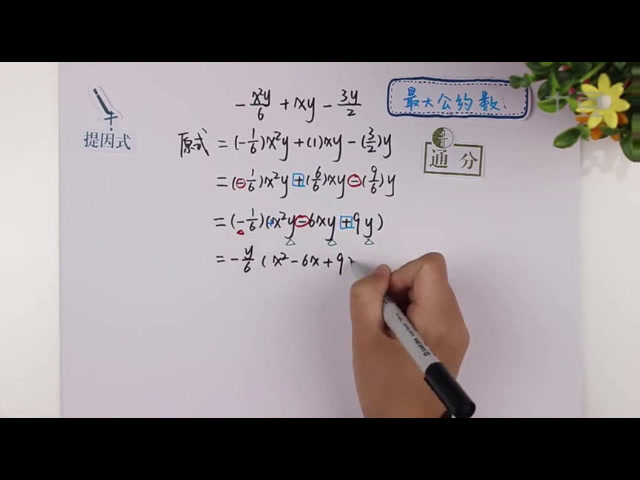 最大公约数
-x²y/6 + xy - 3y/2
提因式
原式 = (-1/6)x²y + (1)xy - (3/2)y
通分
= (-1/6)x²y + (6/6)xy - (9/6)y
= (-1/6)(x²y - 6xy + 9y)
= -y/6 (x² - 6x + 9)